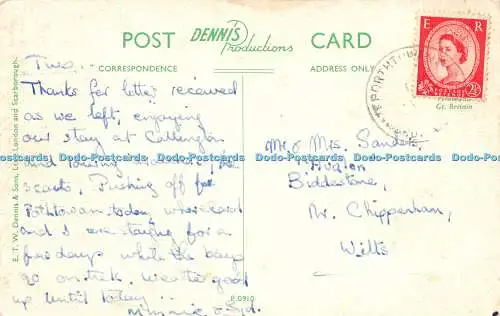 POST DENNIS Productions CARD
CORRESPONDENCE ADDRESS ONLY
E R
2½D
Printed in
Gt. Britain
PORTHTOW
Two..
Thanks for letter received
as we left, enjoying
our stay at Callington
and touring around, the
coasts. Pushing off for
Pothtowan today where card
and I are staying for a
few days while the boys
go on trek. Weather good
up until today ..
Minnie & Syd.
Mr & Mrs. Sanders
Biddestone,
Nr. Chippenham,
Wilts
E. T. W. Dennis & Sons, Ltd., London and Scarborough.
P.0910
Dodo-Postcards Dodo-Postcards Dodo-Postcards Dodo-Postcards Dodo-Postcards Dodo-Postcards